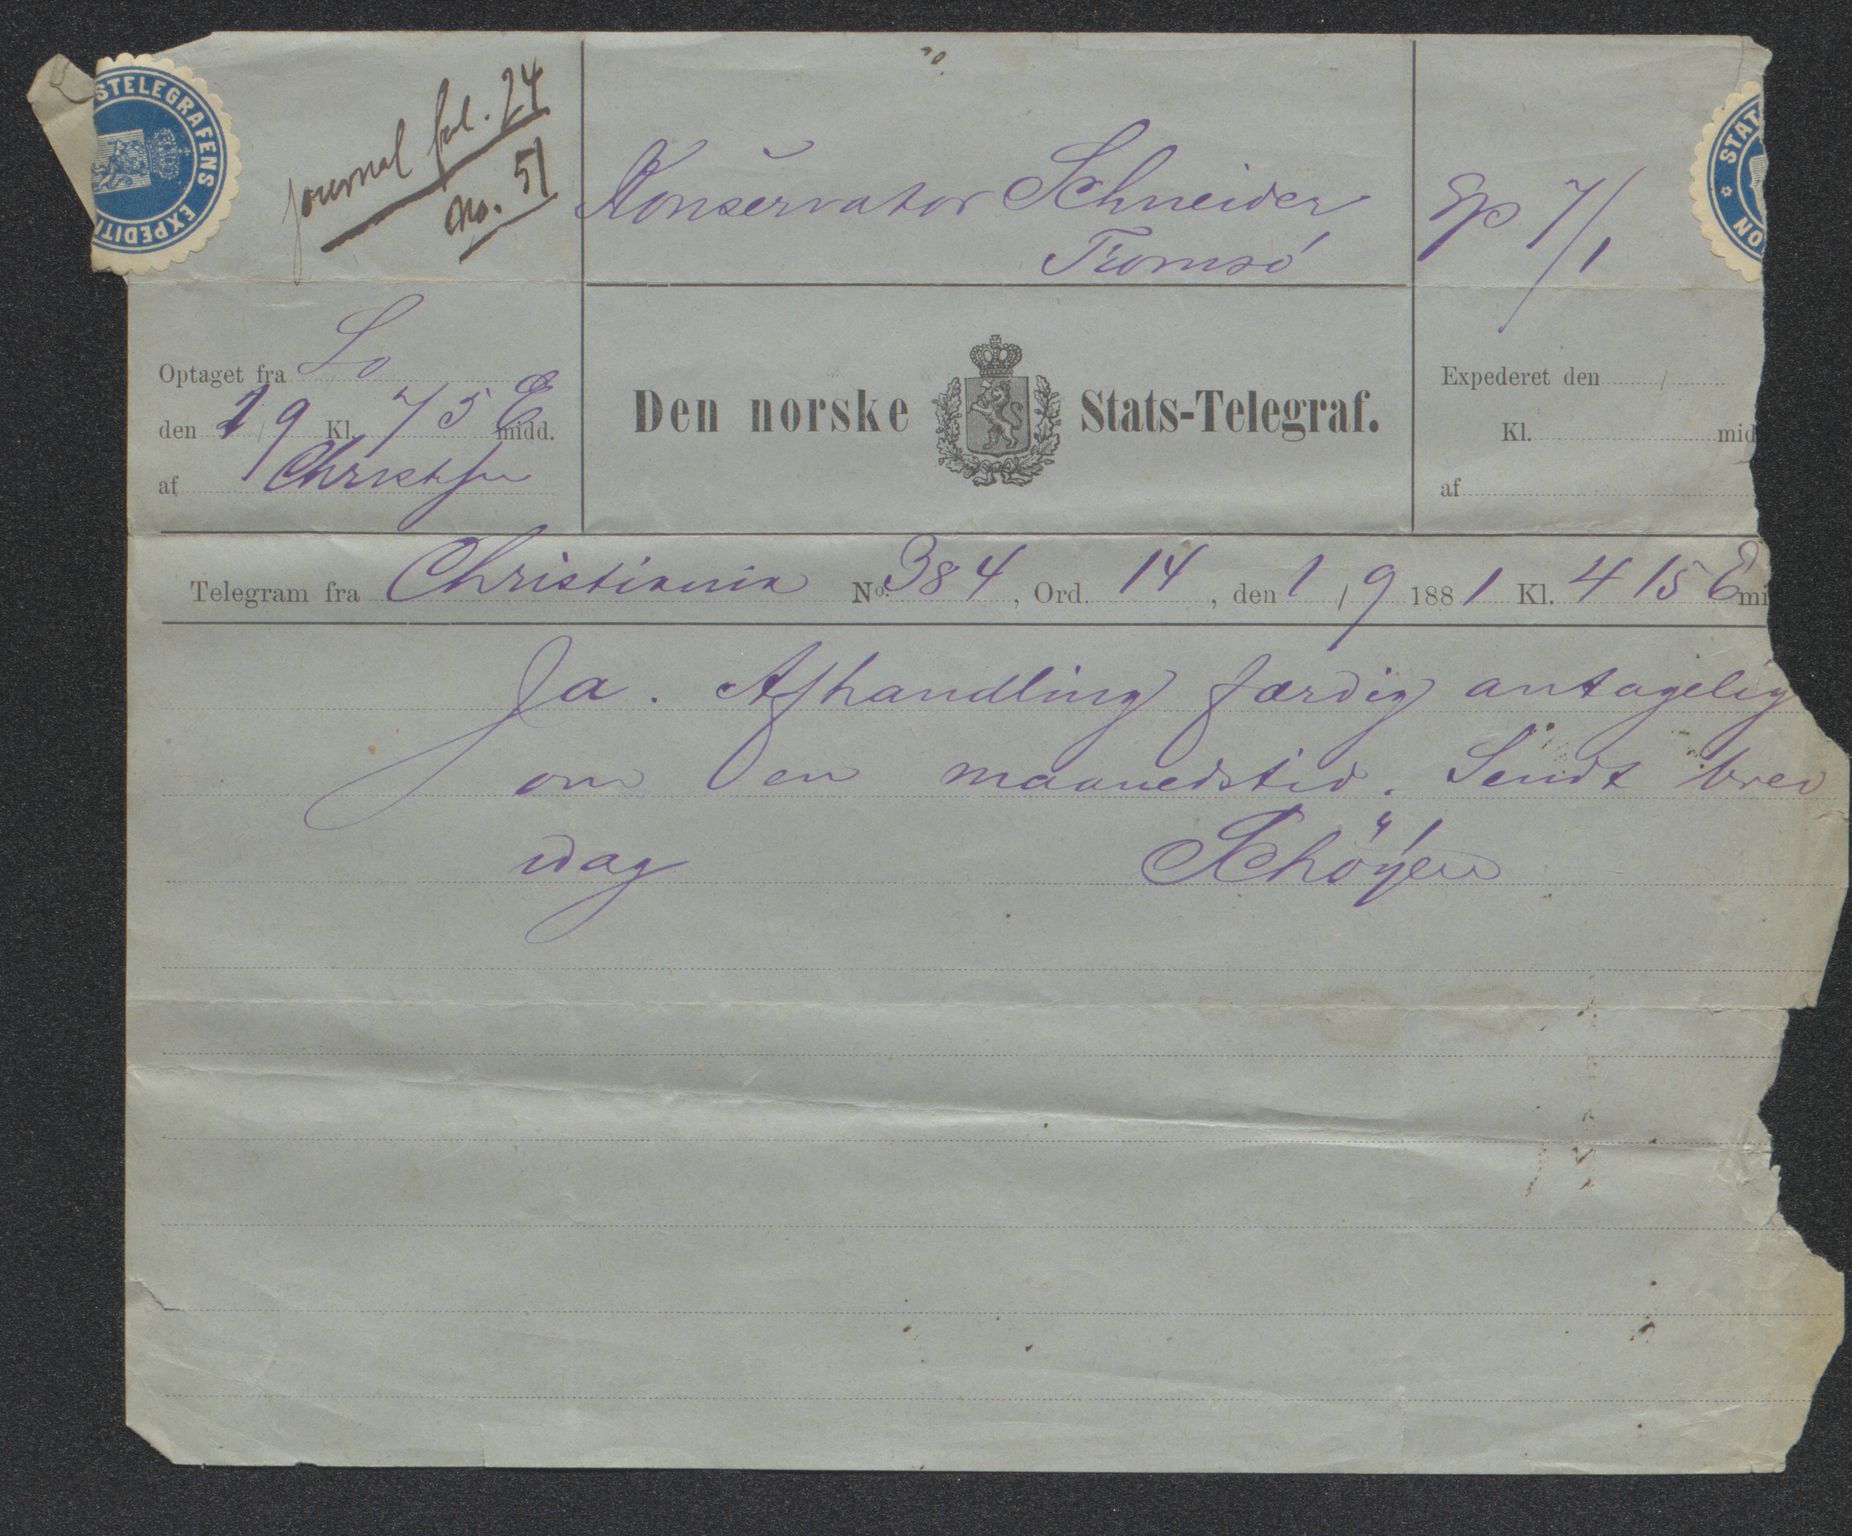 STELEGRAFENS EXPEDITI
Journal fol. 24
No. 51
Konservator Schneider
Tromsö
Ep 7/1
STAT ON
Optaget fra Lo
den 1/9 Kl. 7 5 E midd.
af
Den norske Stats-Telegraf.
Expederet den /
Kl. mid
af
Telegram fra Christiania No. 384, Ord. 14, den 1/9 1881 Kl. 4 15 E mi
Ja. Afhandling færdig antagelig
om en maanedstid. Sendt brev
idag Schöyen